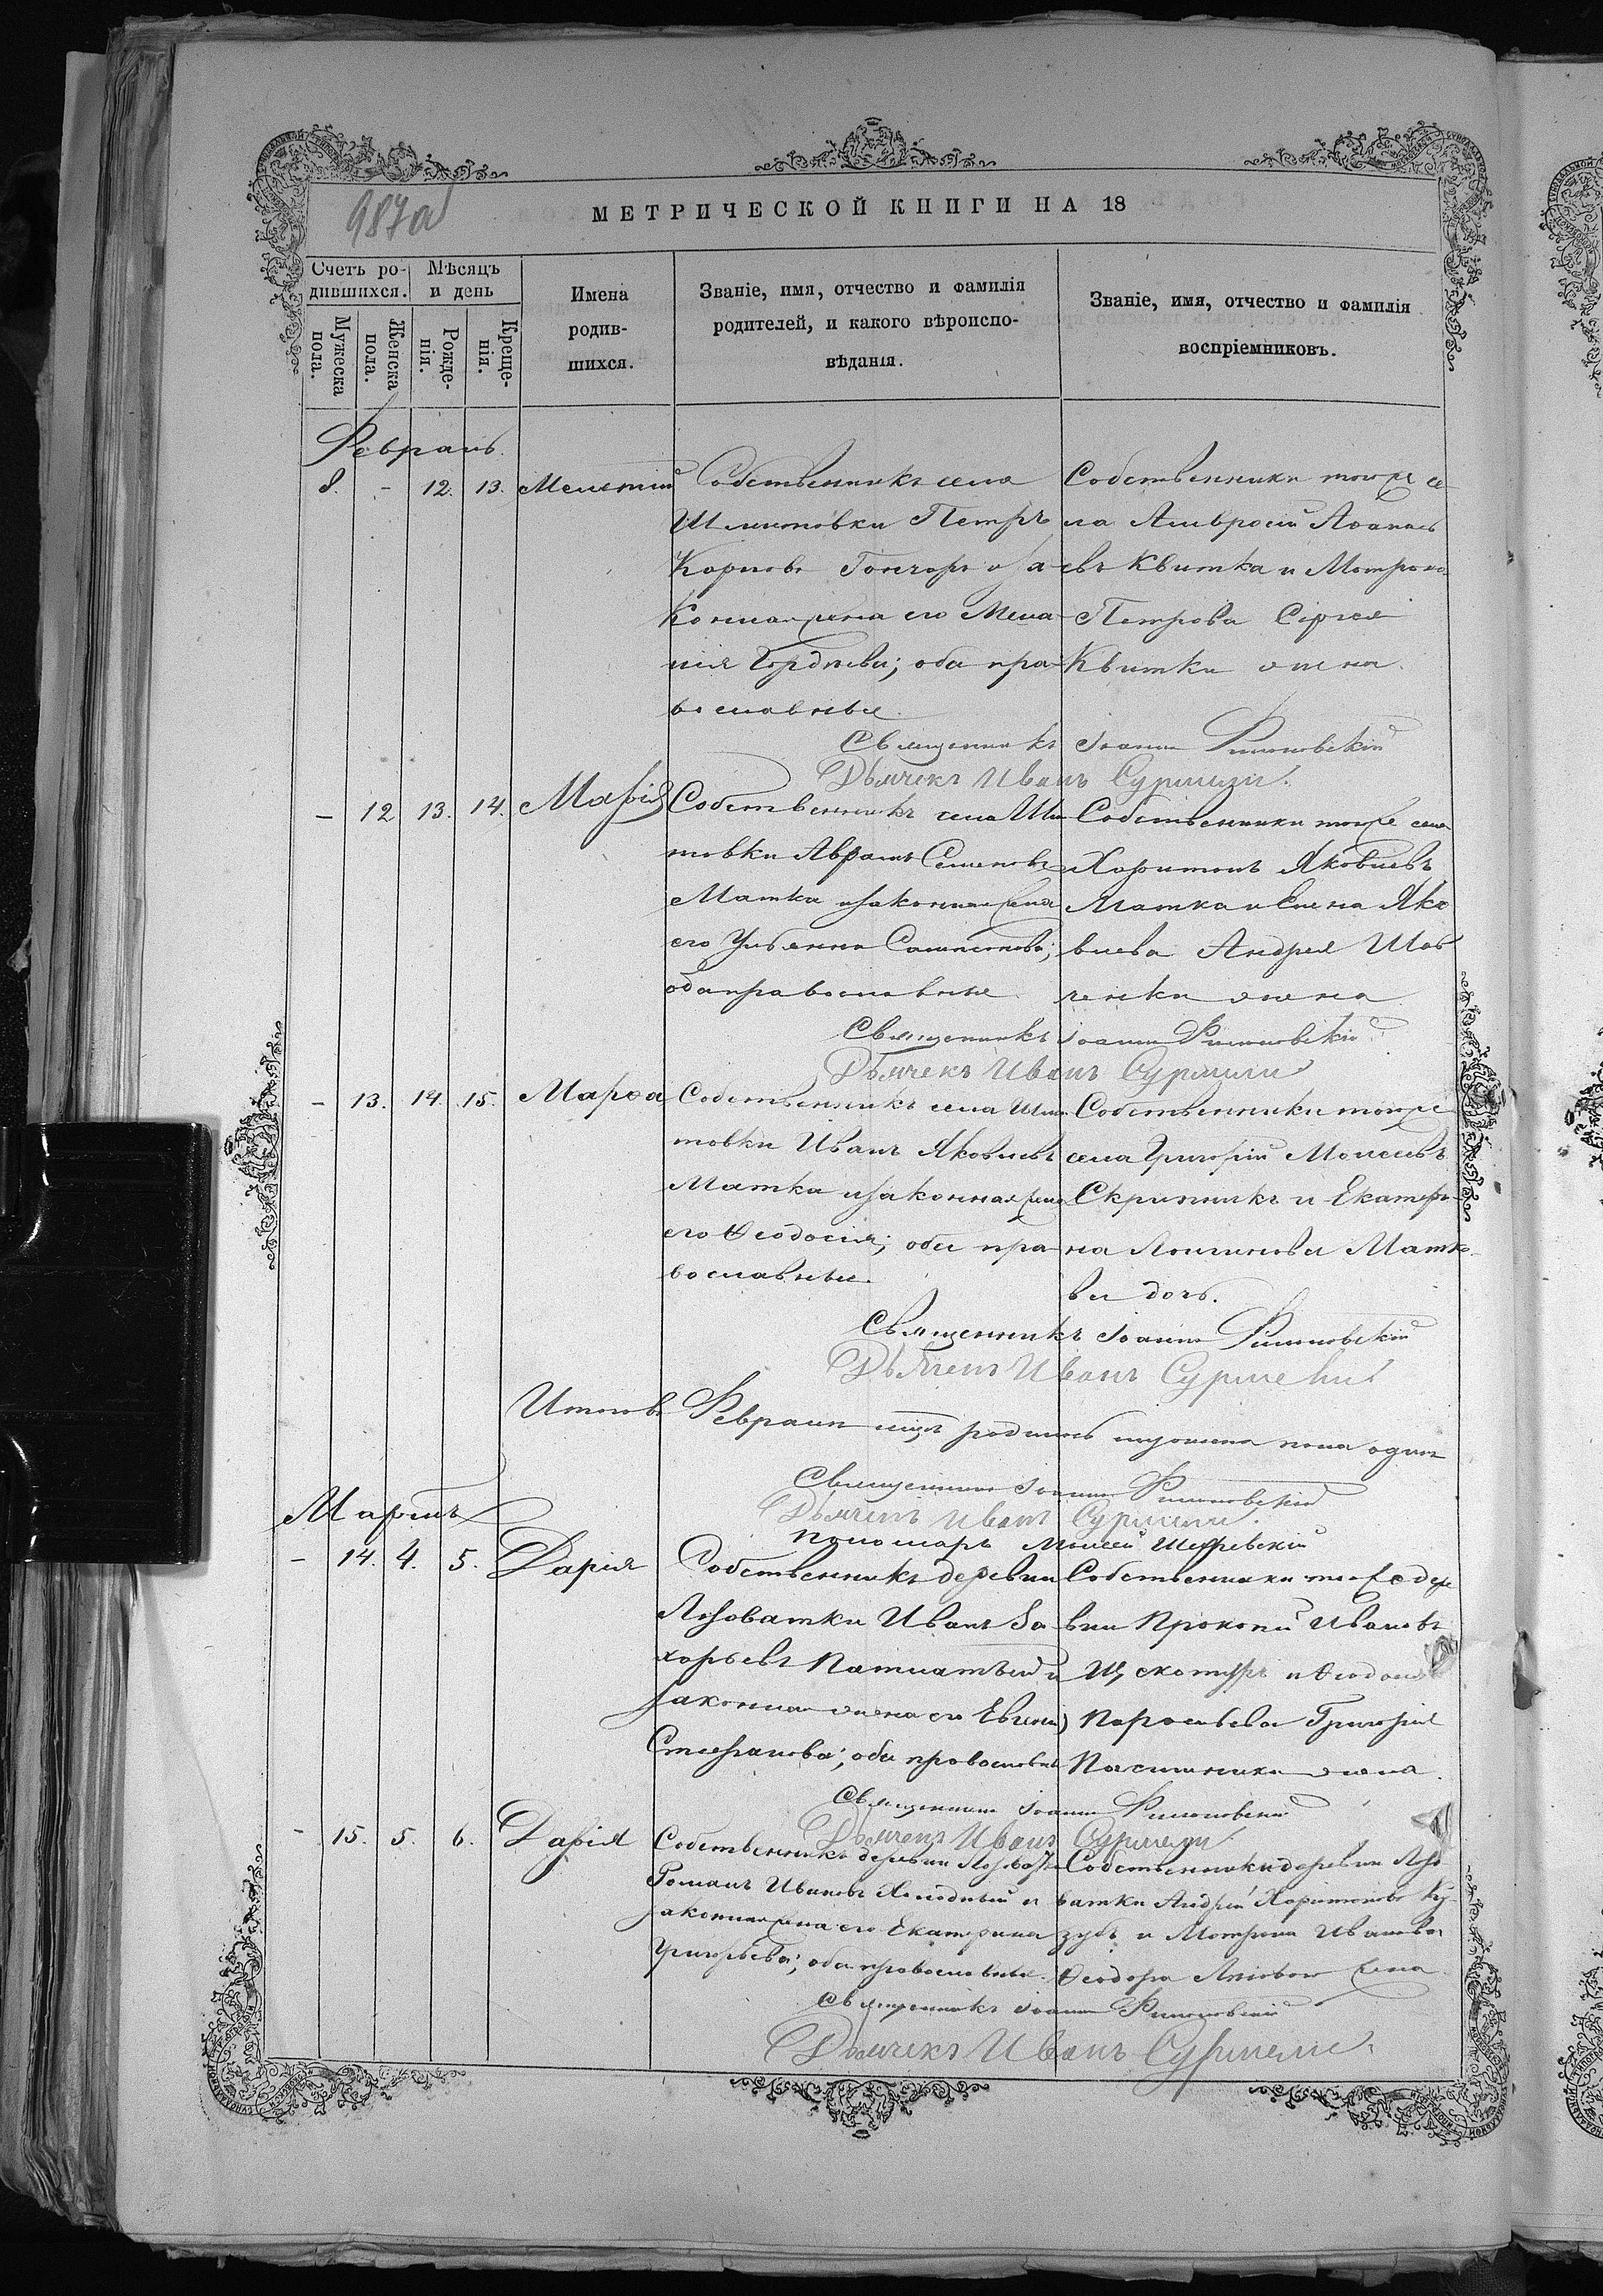 987а
МЕТРИЧЕСКОЙ КНИГИ НА 18
Счетъ ро-
дившихся.
Мѣсяцъ
и день
Мужеска
пола.
Женска
пола.
Рожде-
нія.
Креще-
нія.
Имена
родив-
шихся.
Званіе, имя, отчество и фамилія
родителей, и какого вѣроиспо-
вѣданія.
Званіе, имя, отчество и фамилія
воспріемниковъ.
Февраль
8. - 12. 13. Мелетій
Собственникъ села
Петръ
Карповъ Гончаръ и за
конная жена его Мела
нія Гордѣева; оба пра
вославные.
Собственники тогоже се
ла Амвросій Аѳанась
евъ Квитка и Матрона
Петрова Сергея
Квитки жена.
Священникъ Іоаннъ
Дьячекъ Иванъ
- 12 13. 14. Марія
Собственникъ села Шли
товки Аврамъ Семеновъ
Матка и законная жена
его Ульянна
оба православные
Собственники тогоже села
Харитонъ Яковлевъ
Матка и Елена Яко
влева Андрея Шев
ченки жена
Священникъ Іоаннъ
Дьячекъ Иванъ
- 13. 14. 15. Марѳа
Собственникъ села Шли
товки Иванъ Яковлевъ
Матка и законная жена
его Ѳеодосія; оба пра
вославные.
Собственники тогоже
села Григорій Моисеевъ
Скрипникъ и Екатери
на Логинова Матко
ва дочь.
Священникъ Іоаннъ
Дьячекъ Иванъ
Итого въ Февралѣ родилось мужеска пола одинъ
Священникъ Іоаннъ
Дьячекъ Иванъ
Пономарь Моисей
Мартъ
- 14. 4. 5. Дарія
Собственникъ деревни
Лозоватки Иванъ За
харьевъ и
законная жена его Евгенія
Стефанова; оба православны
Собственники тоже дере
вни Прокопій Ивановъ
и Ѳеодосія
Григорія
Пасичника жена.
Священникъ Іоаннъ
Дьячекъ Иванъ
- 15. 5. 6. Дарія
Собственникъ деревни Лозоватки
Романъ Ивановъ Холодный и
законная жена его Екатерина
Григорьева; оба православные.
Собственники деревни Лозо
ватки Андрей Харитоновъ Ку
зубъ и Матрона Иванова
Ѳеодора жена
Священникъ Іоаннъ
Дьячекъ Иванъ